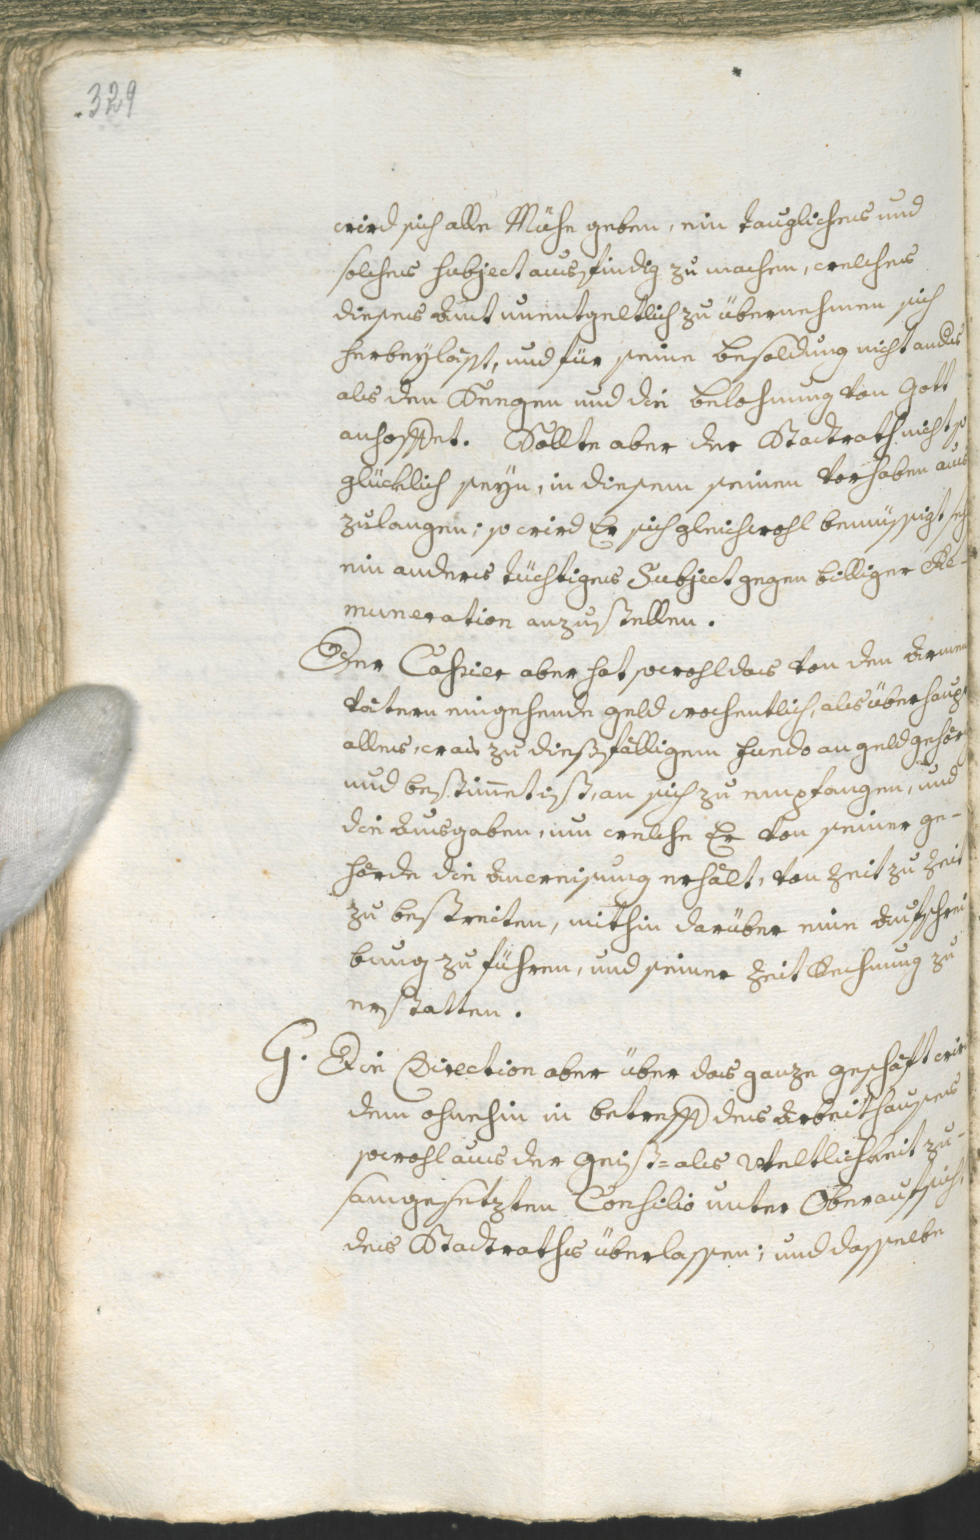 329
wird sich alle Mühe geben, ein tauglichens und
solches Subject ausfindig zu machen, welches
dieses Amt unentgeltlich zu übernehmen sich
herbeyläßt, und für seine Besoldung nicht anders
als den Seegen und die Belohnung von Gott
anhoffet. Sollte aber der Stadtrath nicht so
glücklich seyn, in diesem seinen Vorhaben aus
zulangen; so wird Er sich gleichwohl bemüssigt seh
ein anders tüchtiges Subject gegen billiger Re-
muneration anzustellen.
Der Cassier aber hat sowohl das von den Armen
vätern eingehende geld wochentlich, als überhaupt
alles, was zu dießfälligem Fundo an geld gehör
und bestimet ist, an sich zu empfangen, und
die Ausgaben, um welche Er von seiner ge-
hörde die Anweisung erhält, von Zeit zu Zeit
zu bestreiten, mithin darüber eine Aufschrei
bung zu führen, und seiner Zeit Rechnung zu
erstatten.
G. Die Direction aber über das ganze geschäft wir
dem ohnehin in betreff des Arbeithauses
sowohl aus der Geist= als Weltlichkeit zu-
samgesetzten Consilio unter Oberaufsicht
des Stadtraths überlassen; und dasselbe